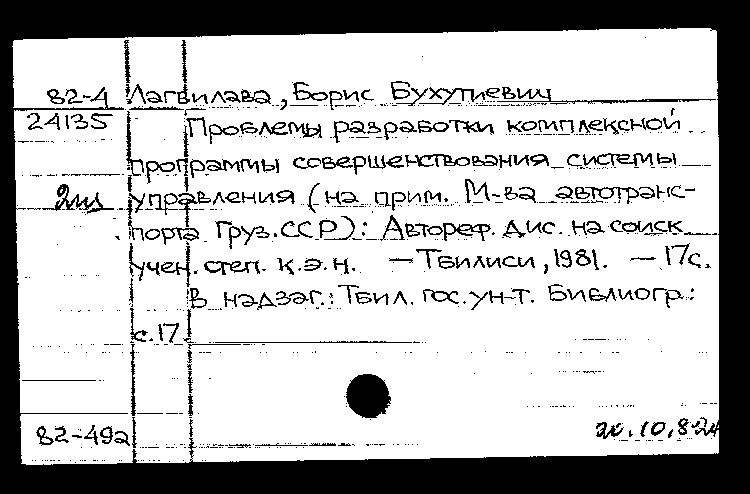 82-4 Лагвилава, Борис Бухутиевич
24135 Проблемы разработки комплексной
программы совершенствования системы
2 управления (на прим. М-ва автотранс-
порта Груз.ССР): Автореф. дис. на соиск.
учен. степ. к.э.н. — Тбилиси, 1981. — 17с.
В надзаг.: Тбил. гос. ун-т. Библиогр.:
с.17.
82-492